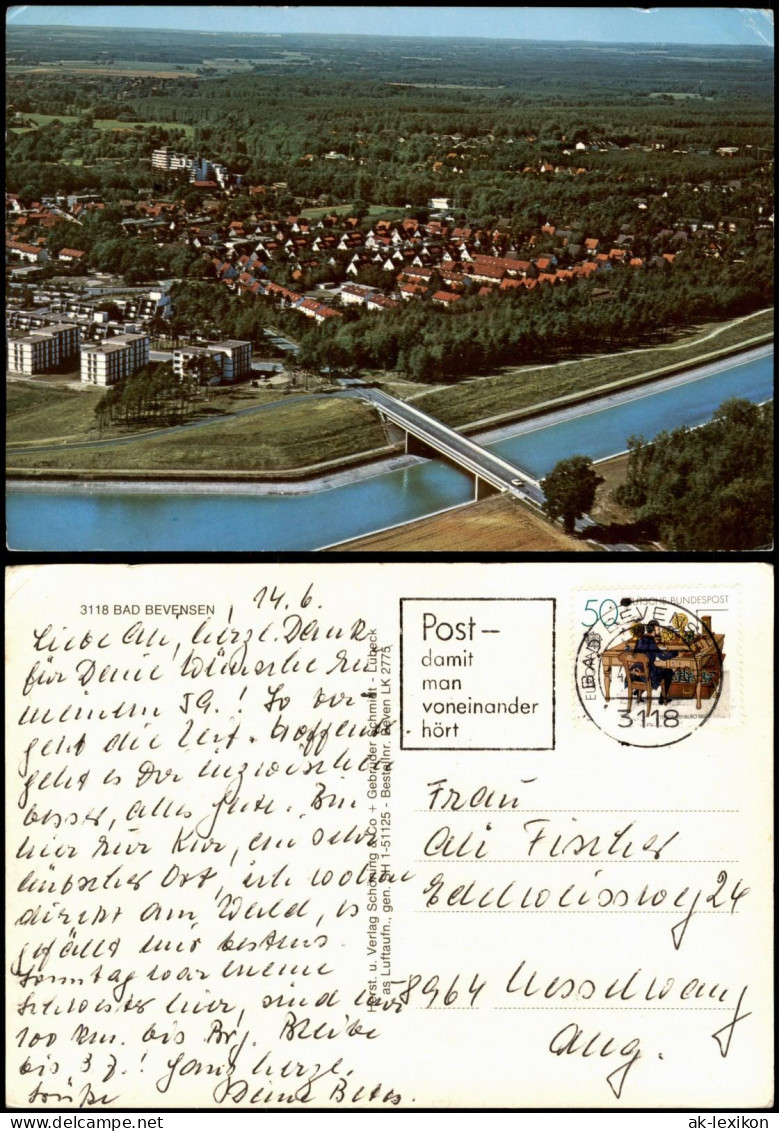 3118 BAD BEVENSEN
14.6.
Liebe Ali, herzl. Dank
für Deine Wünsche zu
meinem
geht die Zeit. Hoffentl.
geht es Dir inzwischen
besser, alles Gute. Bin
hier zur Kur, ein sehr
hübscher Ort, ich wohne
direkt am Wald, es
gefällt mir bestens.
Sonntag war meine
Schwester hier, sind nur
100 km. bis Bleibe
bis Ganz herzl.
Grüße Deine
Horst. u. Verlag Schöning & Co + Gebrüder Schmidt - Lübeck
as Luftaufn., gen. SH 1-51125 - Bestellnr. Beven LK 2775
Post-
damit
man
voneinander
hört
50 DEUTSCHE BUNDESPOST
BAD BEVENSEN
3118
Frau
Ali Fischer
Edelweissweg 24
8964 Nesselwang
Allg.
ak-lexikon